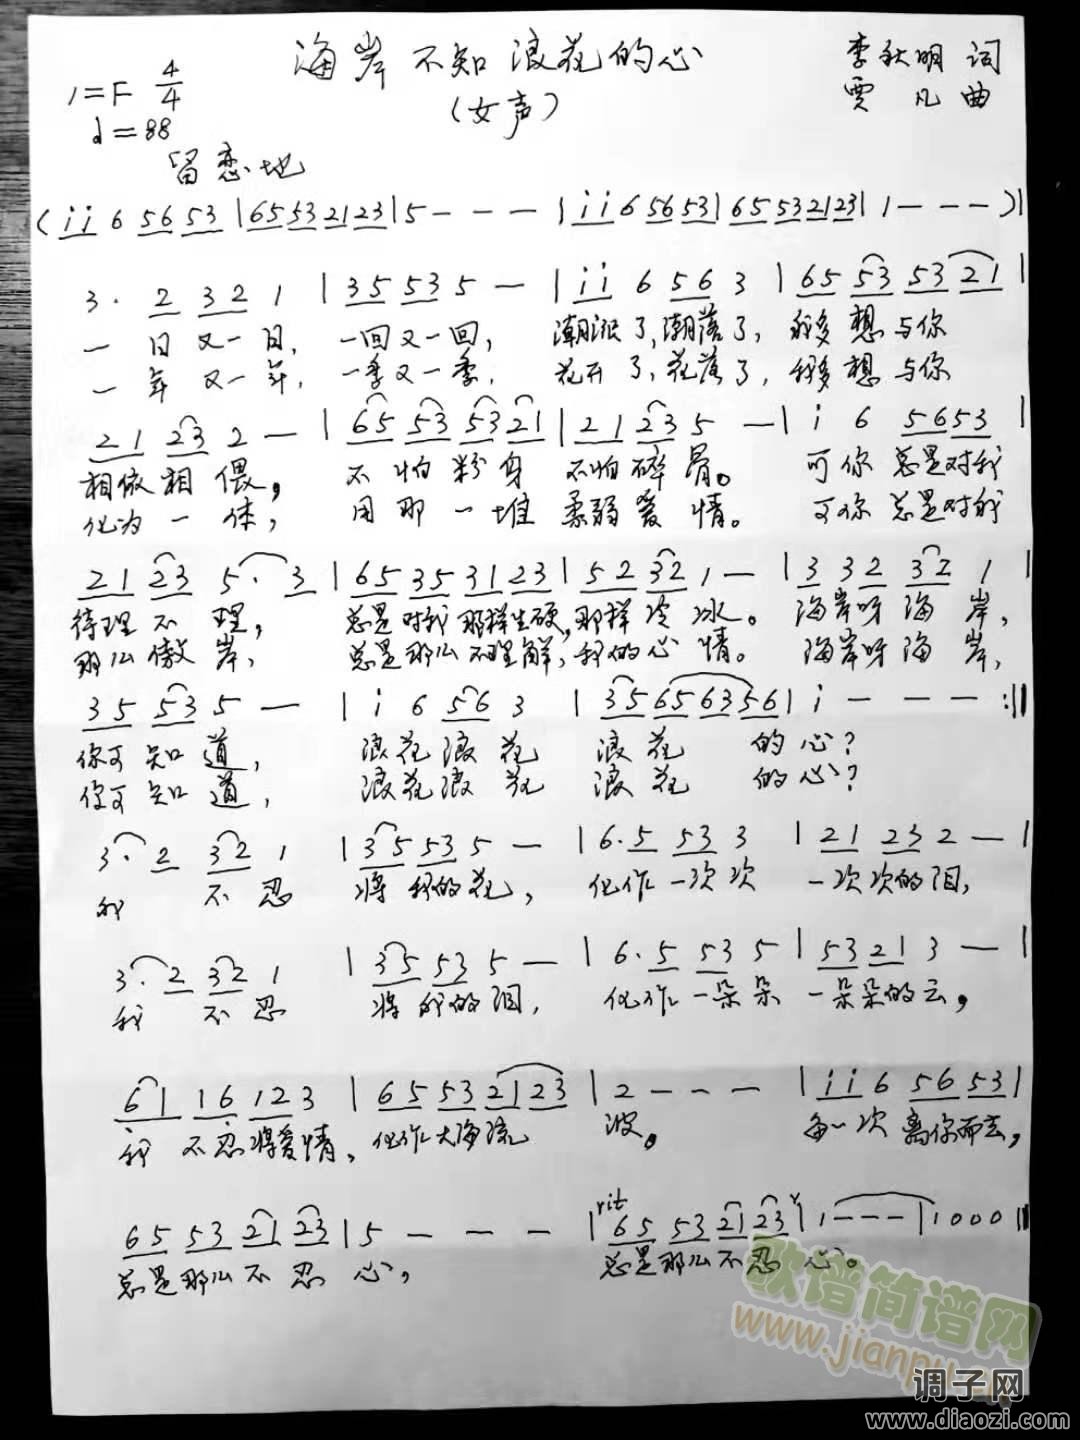 海岸不知浪花的心
1=F 4/4
李秋明 词
(女声)
贾凡 曲
♩=88
留恋地
(i i 6 5 6 5 3 | 6 5 5 3 2 1 2 3 | 5 - - - | i i 6 5 6 5 3 | 6 5 5 3 2 1 2 3 | 1 - - - )|
3 · 2 3 2 1 | 3 5 5 3 5 - | i i 6 5 6 3 | 6 5 5 3 5 3 2 1 |
一日又一日, 一回又一回, 潮涨了,潮落了, 我多想与你
一年又一年, 一季又一季, 花开了,花落了, 我多想与你
2 1 2 3 2 - | 6 5 5 3 5 3 2 1 | 2 1 2 3 5 - | i 6 5 6 5 3 |
相依相偎, 不怕粉身不怕碎骨。 可你总是对我
化为一体, 用那一堆柔弱爱情。 可你总是对我
2 1 2 3 5 · 3 | 6 5 3 5 3 1 2 3 | 5 2 3 2 1 - | 3 3 2 3 2 1 |
待理不理, 总是对我那样生硬,那样冷冰。 海岸呀海岸,
那么傲岸, 总是那么不理解,我的心情。 海岸呀海岸,
3 5 5 3 5 - | i 6 5 6 3 | 3 5 6 5 6 3 5 6 | i - - - :‖
你可知道, 浪花浪花 浪花的心?
你可知道, 浪花浪花 浪花的心?
3 · 2 3 2 1 | 3 5 5 3 5 - | 6 · 5 5 3 3 | 2 1 2 3 2 - |
我不忍 将我的花, 化作一次次 一次次的泪,
3 · 2 3 2 1 | 3 5 5 3 5 - | 6 · 5 5 3 5 | 5 3 2 1 3 - |
我不忍 将我的泪, 化作一朵朵 一朵朵的云,
6 1 1 6 1 2 3 | 6 5 5 3 2 1 2 3 | 2 - - - | i i 6 5 6 5 3 |
我不忍将爱情, 化作大海流波。 每一次离你而去,
rit
6 5 5 3 2 1 2 3 | 5 - - - | 6 5 5 3 2 1 2 3 | 1 - - - | 1 0 0 0 ‖
总是那么不忍心, 总是那么不忍心。
歌谱简谱网
www.jianpu.cn
调子网
www.diaozi.com